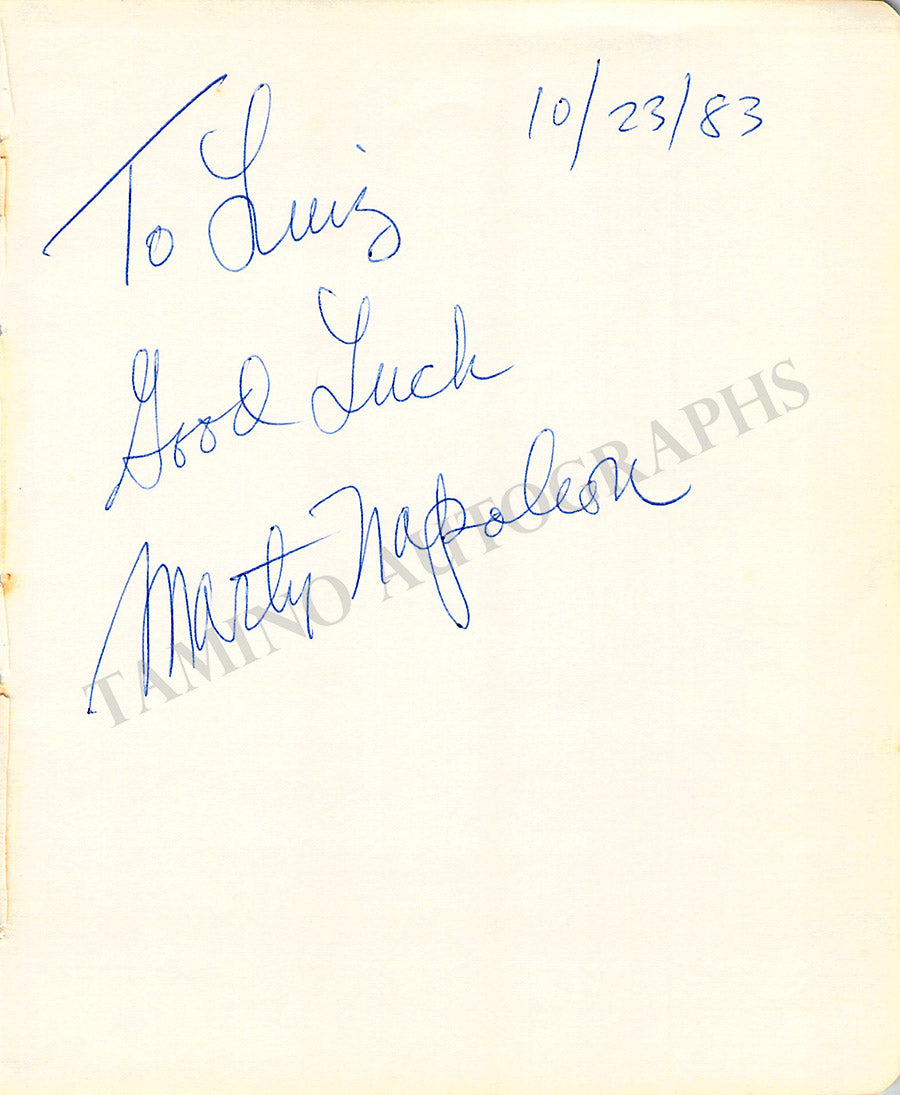 10/23/83
To Luiz
Good Luck
Marty Napoleon
TAMINO AUTOGRAPHS